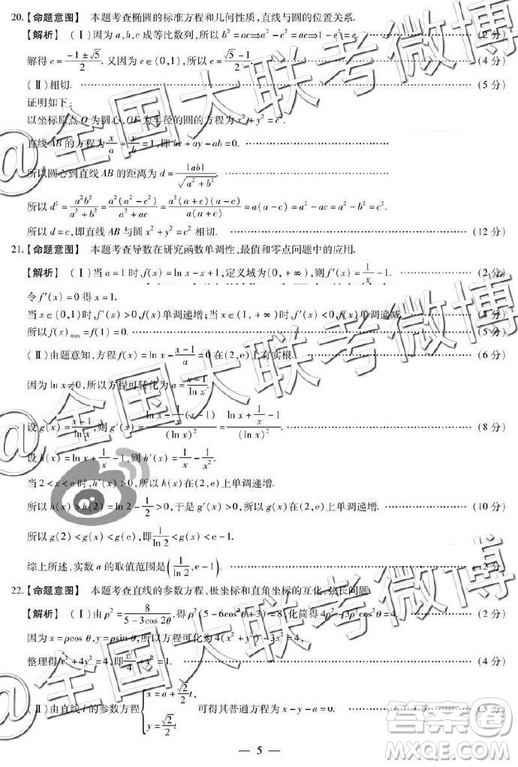 20.【命题意图】 本题考查椭圆的标准方程和几何性质,直线与圆的位置关系.
【解析】 (Ⅰ)因为a,b,c成等比数列,所以b²=ac⇒a²-c²=ac. (2分)
解得e=(-1±√5)/2. 又因为e∈(0,1),所以e=(√5-1)/2. (5分)
(Ⅱ)相切.
证明如下:
以坐标原点O为圆心,OF为半径的圆的方程为x²+y²=c².
直线AB的方程为x/a+y/b=1,即bx+ay-ab=0.
所以圆心到直线AB的距离为d=|ab|/√(a²+b²)
所以d²=a²b²/(a²+b²)=a²(a²-c²)/(a²+ac)=a²(a+c)(a-c)/a(a+c)
所以d=c,即直线AB与圆x²+y²=c²相切. (12分)
21.【命题意图】 本题考查导数在研究函数单调性、最值和零点问题中的应用.
【解析】 (Ⅰ)当a=1时,f(x)=ln x-x+1,定义域为(0,+∞),则f'(x)=1/x-1. (2分)
令f'(x)=0得x=1.
当x∈(0,1)时,f'(x)>0,f(x)单调递增;当x∈(1,+∞)时,f'(x)<0,f(x)单调递减. (4分)
所以f(x)max=f(1)=0. (6分)
(Ⅱ)由题意知,方程f(x)=ln x-(x-1)/a=0在(2,e)上有实根.
因为ln x≠0,所以方程可转化为a=(x-1)/ln x.
设g(x)=(x-1)/ln x,则g'(x)=(ln x-1/x(x-1))/(ln x)²=(ln x+1/x-1)/(ln x)². (8分)
设h(x)=ln x+1/x-1,则h'(x)=1/x-1/x².
当2<x<e时,h'(x)>0,所以h(x)在(2,e)上单调递增.
所以h(x)>h(2)=ln 2-1/2>0,于是g'(x)>0,所以g(x)在(2,e)上单调递增. (10分)
所以g(2)<g(x)<g(e),即1/ln 2<g(x)<e-1.
综上所述,实数a的取值范围是(1/ln 2,e-1). (12分)
22.【命题意图】 本题考查直线的参数方程,极坐标和直角坐标的互化,弦长问题.
【解析】 (Ⅰ)由ρ²=8/(5-3cos 2θ),得ρ²(5-6cos²θ+3)=8,化简得4ρ²-3ρ²cos²θ=4. (2分)
因为x=ρcos θ,y=ρsin θ,所以方程可化为4(x²+y²)-3x²=4,
整理得x²+4y²=4,即x²/4+y²=1. (4分)
(Ⅱ)由直线l的参数方程{x=a+√2/2 t, y=√2/2 t 可得其普通方程为x-y-a=0. (5分)
— 5 —
@全国大联考微博
@全国大联考微博
@全国大联考微博
答案圈
MXQE.COM